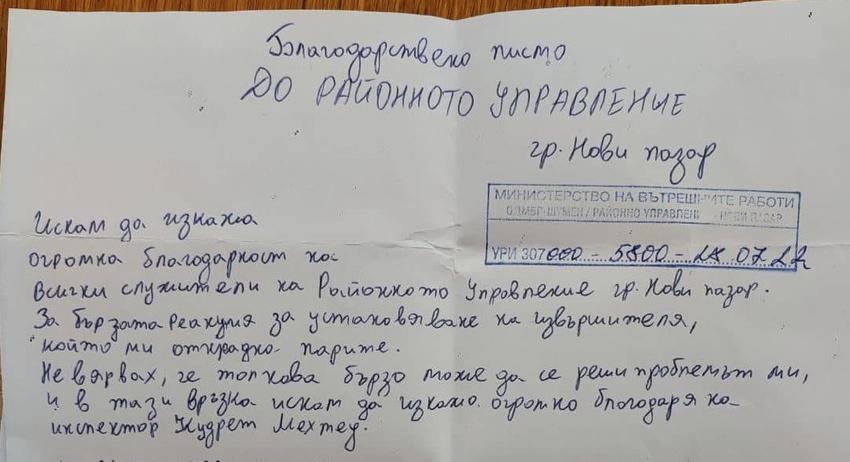 Благодарствено писмо
ДО РАЙОННОТО УПРАВЛЕНИЕ
гр. Нови пазар
МИНИСТЕРСТВО НА ВЪТРЕШНИТЕ РАБОТИ
ОДМВР-ШУМЕН / РАЙОННО УПРАВЛЕНИ НОВИ ПАЗАР
УРИ 307000 - 5800 - 28 07 22
Искам да изкажа
огромна благодарност на
всички служители на Районното Управление гр. Нови пазар.
За бързата реакция за установяване на извършителя,
който ми открадна парите.
Не вярвах, че толкова бързо може да се реши проблемът ми,
и в тази връзка искам да изкажа огромно благодаря на
инспектор Кудрет Мехмед.